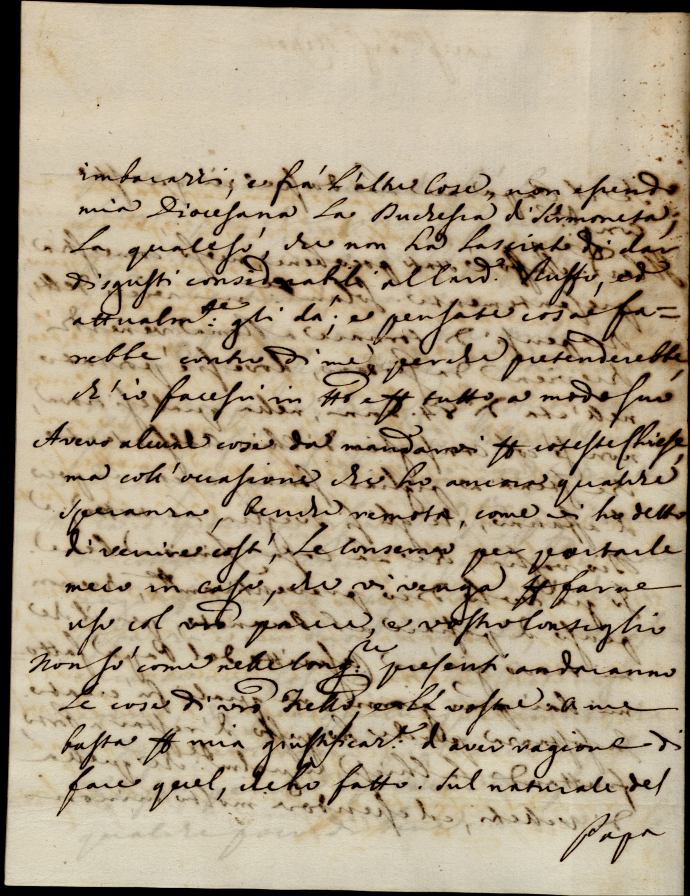 imbarazzi, e frà l'altre cose, non essendo
mia Diocesana la Duchessa di Sermoneta,
la quale sò, che non ha lasciato di dar
disgusti considerabili al Card.e Ruffo, ed
attualm.te gli dà; e pensate cosa fa=
rebbe contro di me, perche pretenderebbe,
ch'io facessi in tto e p tutto a modo suo
Avevo alcune cose da mandarvi p coteste Chiese,
ma coll'occasione che ho ancora qualche
speranza, benche remota, come vi ho detto
di venire costì, le conservo per portarle
meco in caso, che vi venga p farne
uso col vro parere, e vostro Consiglio
Non sò come nelle Cong.ni presenti anderanno
le cose di vro e le vostre a me
basta p mia giustificaz.e d'aver ragione di
fare quel, che hò fatto. Sul naturale del
Papa